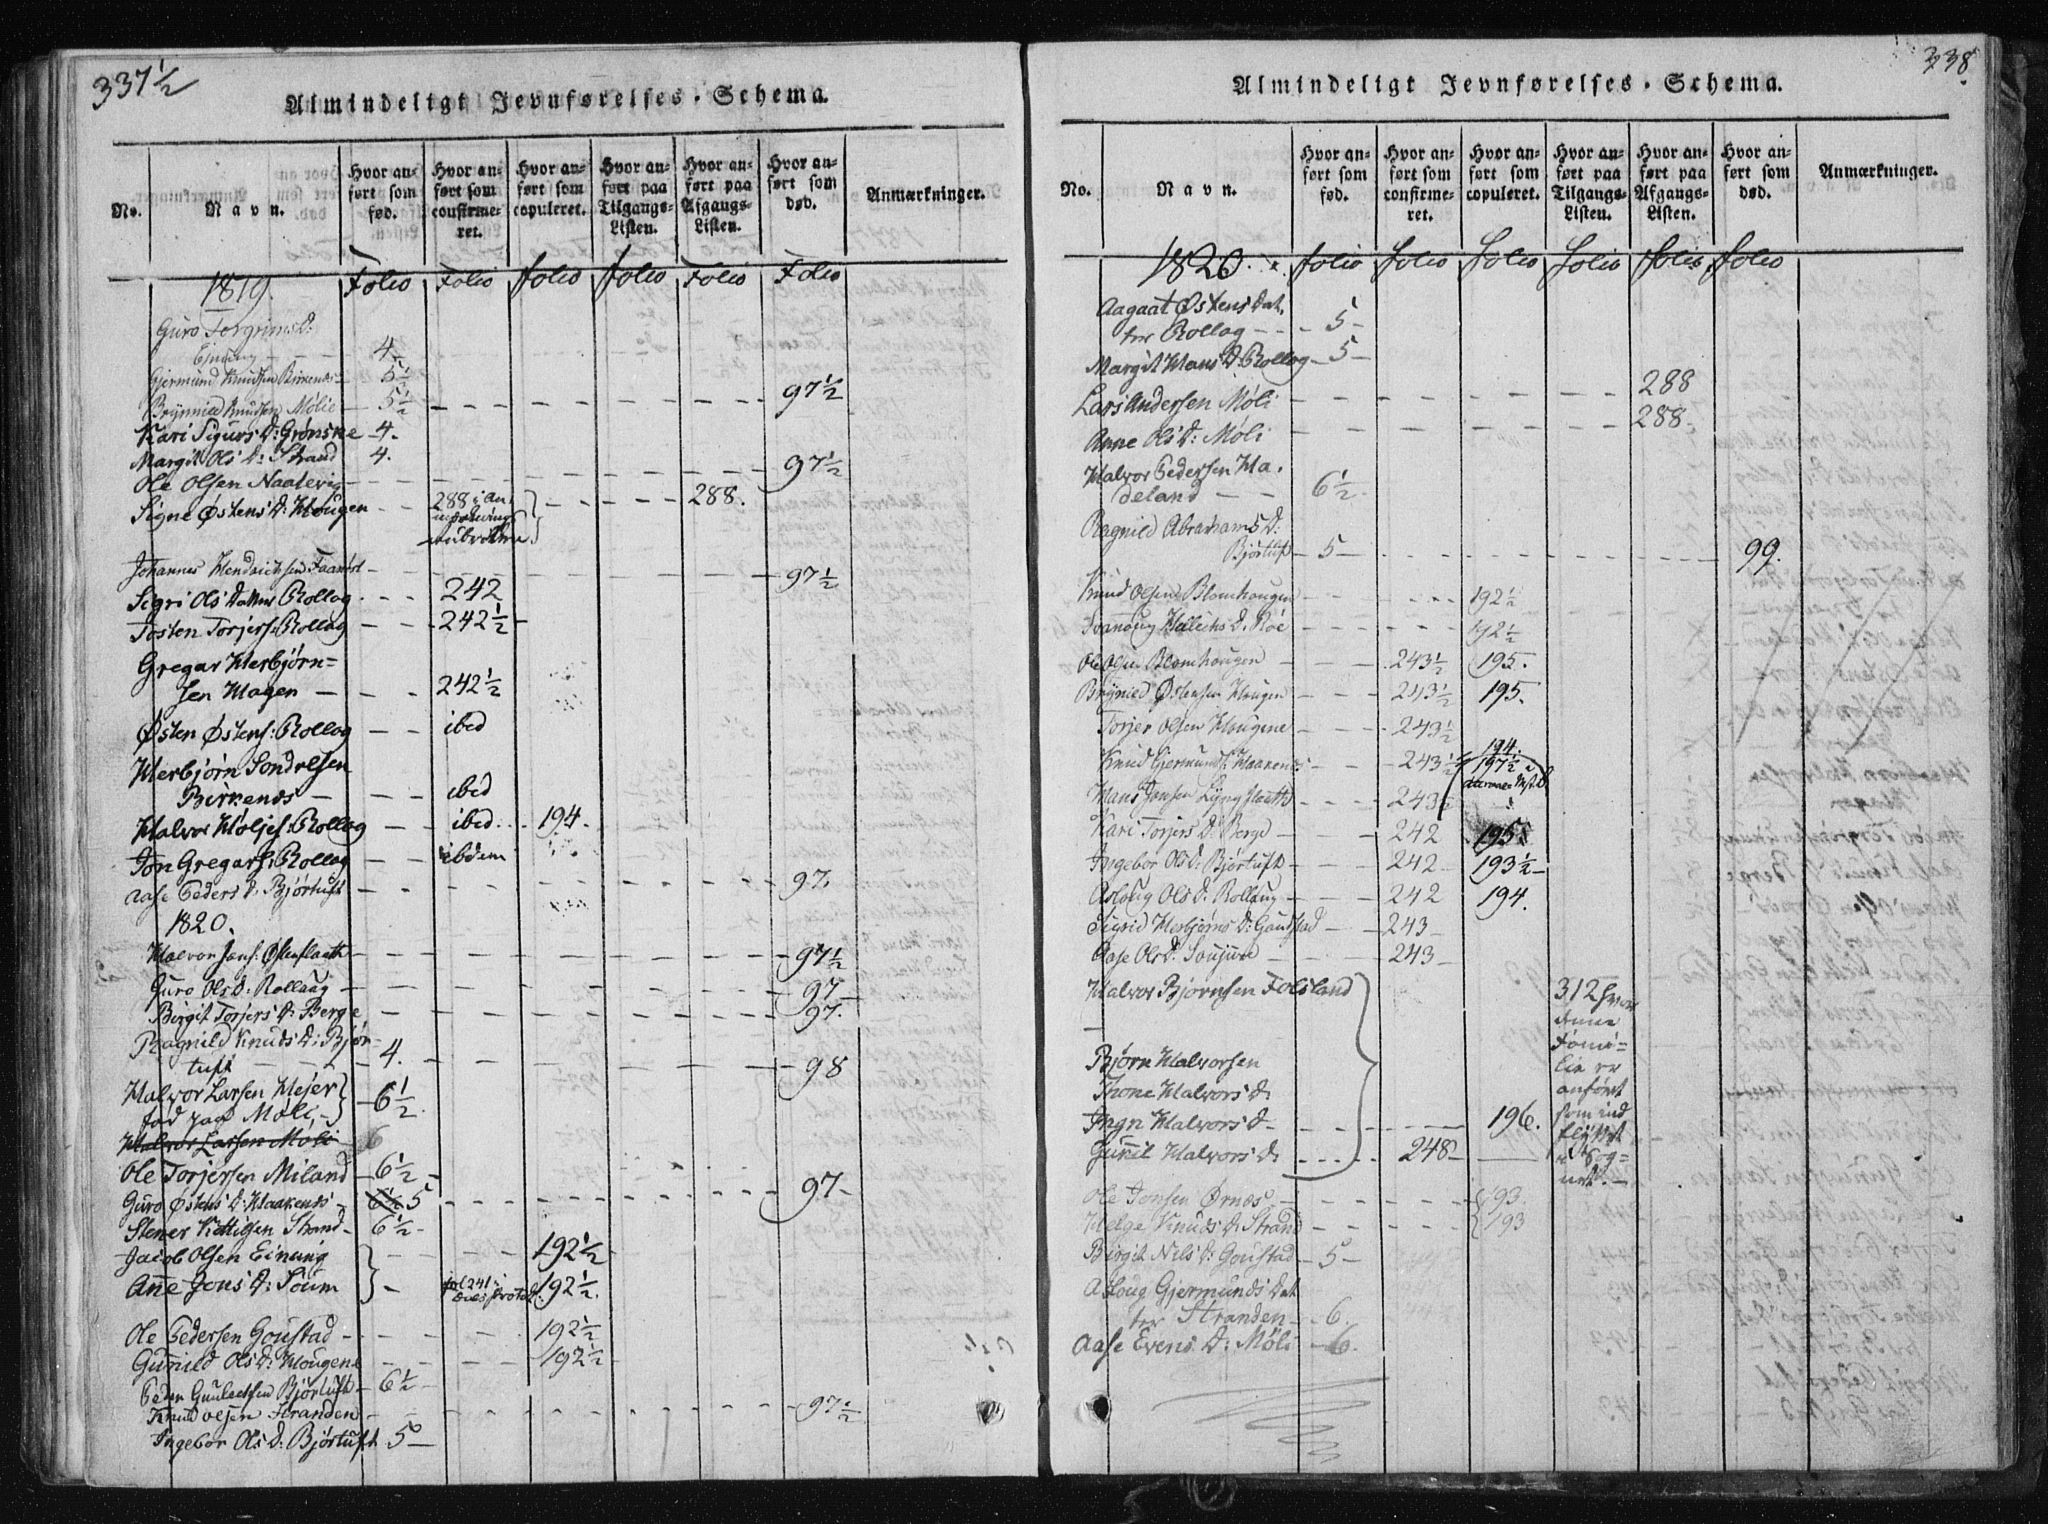 337 1/2
Almindeligt Jevnførelses-Schema.
No.
Navn.
Hvor anført som fød.
Hvor anført som confirmeret.
Hvor anført som copuleret.
Hvor anført paa Tilgangs-Listen.
Hvor anført paa Afgangs-Listen.
Hvor anført som død.
Anmærkninger.
1819. Folio Folio folio folio Folio Folio
Guro Torgrims D:
Einung - - 4 1/2
Gjermund Knudsen Birkenes - 5 1/2
Brynnild Knudsen Mølie - 5 1/2 - - - 97 1/2
Kari Sigurs D: Grønske - 4.
Margit Ols D: Strand 4.
Ole Olsen Naatevig - - - 97 1/2
Signe Østens D: Hougen - - 288 - - - 288.
Johannes Hendrichsen - - - 97 1/2
Sigri Ols Datter Rollag - - - 242
Tosten Torjers: Rollag - - - 242 1/2 -
Gregar Herbjørn=
sen Hagen - - - 242 1/2
Østen Østens: Rollag - - ibid
Herbjørn Sondresen
Birkenæs - - - ibid
Halvor Holjes: Rollag - - ibid... 194.
Jon Gregars: Rollag - - ibdem
Aase Peders D. Bjørtuft - - - 97.
1820.
Halvor Jans: - - - 97 1/2
Guro Ols D: Rollaag - - - 97
Birgit Torjers D: Berge - - - 97.
Ragnild Knuds D: Bjør-
tuft - - 4. - - - 98
Halvor Larsen Mejer
fød paa Møli - 6 1/2.
Halvor Larsen Møli 6
Ole Torjersen Miland - 6 1/2 -
Guro Østens D: Haakenæs - 6 1/2 5 - - - 97 -
Stener Kittilsen Strand - 6 1/2 -
Jacob Olsen Einung - - - 192 1/2
Anne Jons D: Soum - fol 241 192 1/2.
Ole Pedersen Goustad - - - 192 1/2
Gunild Ols D: Hougene - - - 192 1/2
Peder Gunleiksen Bjørtuft - 6 1/2 -
Knud Olsen Stranden - - - 97 1/2
Ingebor Ols D: Bjørtuft 5 -
338.
Almindeligt Jevnførelses-Schema.
No.
Navn.
Hvor anført som fød.
Hvor anført som confirmeret.
Hvor anført som copuleret.
Hvor anført paa Tilgangs-Listen.
Hvor anført paa Afgangs-Listen.
Hvor anført som død.
Anmærkninger.
1820. folio folio folio folio folio folio
Aagaat Østens Dat,
ter Rollag - - - 5 -
Margit Hans D: Rollag - 5 -
Lars Andersen Møli - - - 288
Anne Ols D: Møli - - - 288 -
Halvor Pedersen Ha,
deland - - 6 1/2.
Ragnild Abrahams D:
Bjørtuft - 5 - - - 99.
Knud Olsen Blomhougen - - - 192 1/2
D. Røe - - - 192 1/2
Ole Olsen Blomhougen - - - 243 1/2 195.
Brynild Østensen Hougen - - - 243 1/2 195.
Torjer Olsen Hougene - - - 243 1/2
Knud Gjermunds: Haakenæs - - 243 1/2 194. 197 1/2
Hans Jansen - - - 243 1/2
Kari Torjers D: Berge - - - 242 195.
Ingebor Ols D. Bjørtuft - - - 242 - 193 1/2 -
Aslaug Ols D. Rollaug - - - 242 194.
Sigrid Herbjørns D: Gaustad - - 243 -
Aase Ols D. - - - 243 -
Halvor Bjørnsen Folsland
312 hvor
denne
Fami=
lie er
anført
som ind
flyttet
i Sog=
net. -
Bjørn Halvorsen
Thone Halvors D.
Ingn Halvors D - - - 196.
Gunil Halvors D. - - - 248 - -
Ole Jonsen Ørnæs - - - 193.
Helge Knuds D. Strand - - - 193
Birgit Nils D: Goustad - 5 -
Aslaug Gjermunds Dat
ter Stranden - - 6.
Aase Evens D: Møli - 6.